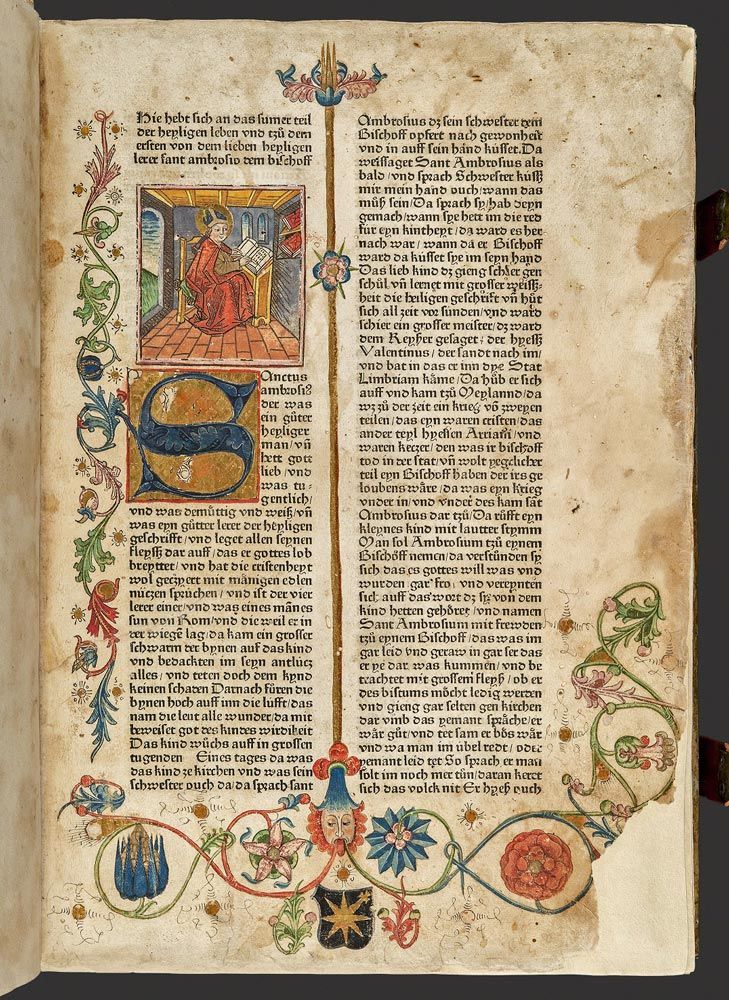 Hie hebt sich an das sumer teil
der heyligen leben vnd tzů dem
ersten von dem lieben heyligen
lerer sant ambrosio dem bischoff
SAnctus
ambrosiꝰ
der was
ein gůter
heyliger
man/vñ
hett gott
lieb/vnd
was tu⸗
gentlich/
vnd was demůttig vnd weiß/vñ
was eyn gůtter lerer der heyligen
geschrifft/vnd leget allen seynen
fleyß dar auff/das er gottes lob
breyttet/vnd hat die cristenheyt
wol geczyert mit mänigen edlen
nützen sprüchen/vnd ist der vier
lerer einer/vnd was eines mānes
sun von Rom/vnd die weil er in
der wiege lag/da kam ein grosser
schwarm der bynen auf das kind
vnd bedackten im seyn antlücz
alles/vnd teten doch dem kynd
keinen schaden Darnach fůren die
bynen hoch auff inn die lüfft/des
nam die leut alle wunder/da mit
beweiset got des kindes wirdikeit
Das kind wůchs auff in grossen
tugenden Eines tages da was
das kind ze kirchen vnd was sein
schwester ouch da/da sprach sant
Ambrosius dz sein schwester dem
Bischoff opfert nach gewonheit
vnd in auff sein hand küsset. Da
weissaget Sant Ambrosius als
bald/vnd sprach Schwester küß
mir mein hand ouch/wann das
můß sein/Da sprach sy/hab deyn
gemach/wann sye hett im die red
für eyn kintheyt/dz ward es her
nach war/wann da er Bischoff
ward da küsset sye im seyn hand
Das lieb kind dz gieng schier gen
schůl vñ lernet mit grosser weiß⸗
heit die heiligen geschrift vñ hůt
sich all zeit vor sunden/vnd ward
schier ein grosser meister/dz ward
dem Keyser gesaget/der hyeß
Valentinus/der sandt nach im/
vnd bat in das er inn dye Stat
Limbriam käme/Da hůb er sich
auff vnd kam tzů Meylannd/da
wz zů der zeit ein krieg vō zweyen
teilen/das eyn waren cristen/das
ander teyl hyessen Arriani/vnd
waren keczer/den was ir bischoff
tod in der stat/vñ wolt yegclicher
teil eyn Bischoff haben der irs ge
loubens wäre/da was eyn krieg
vnder in/vnd vnder des kam sāt
Ambrosius dar tzů/Da růfft eyn
kleynes kind mit lautter stymm
Man sol Ambrosium tzů eynem
Bischöff nemen/da verstůnden sy
sich das es gottes will was vnd
wurden gar fro/vnd vereynten
sich auff das wort dz sy von dem
kind hetten gehöret/vnd namen
Sant Ambrosium mit frewden
tzů eynem Bischoff/das was im
gar leid vnd geraw in gar ser das
er ye dar was kummen/vnd be
trachtet mit grossem fleyß/ob er
des bistums möcht ledig werden
vnd gieng gar selten gen kirchen
dar vmb das yemant spräche/er
wär gůt/vnd tet sam er bös wär
vnd wa man im übel redt/oder
yemant leid tet So sprach er man
solt im noch mer tůn/daran keret
sich das volck nit Er hyeß ouch